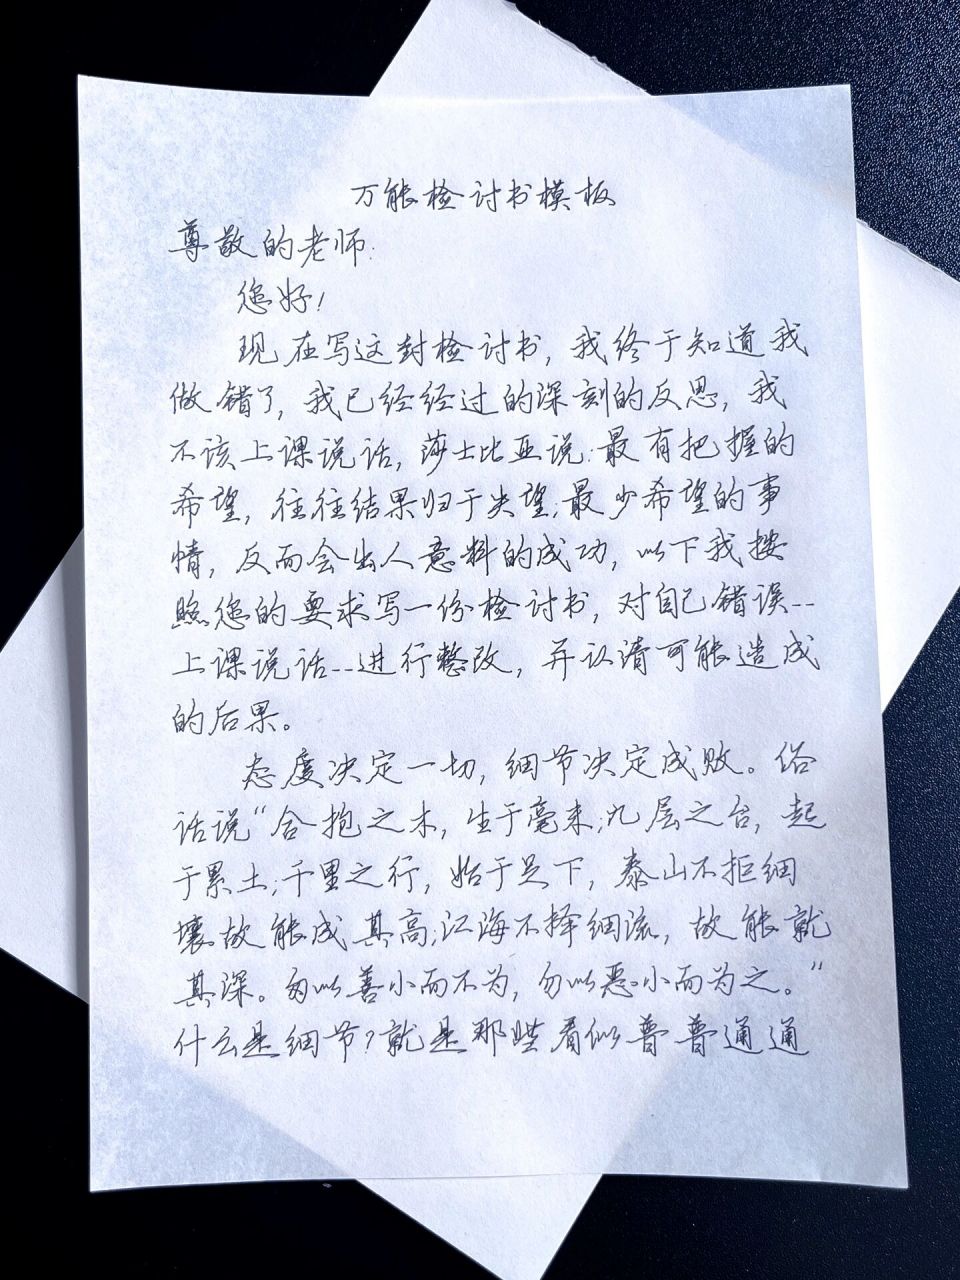 万能检讨书模板
尊敬的老师:
您好!
现在写这封检讨书,我终于知道我
做错了,我已经经过的深刻的反思,我
不该上课说话,莎士比亚说:最有把握的
希望,往往结果归于失望;最少希望的事
情,反而会出人意料的成功,以下我按
照您的要求写一份检讨书,对自己错误--
上课说话--进行整改,并认清可能造成
的后果。
态度决定一切,细节决定成败。俗
话说“合抱之木,生于毫末;九层之台,起
于累土;千里之行,始于足下,泰山不拒细
壤故能成其高;江海不择细流,故能就
其深。勿以善小而不为,勿以恶小而为之。”
什么是细节?就是那些看似普普通通